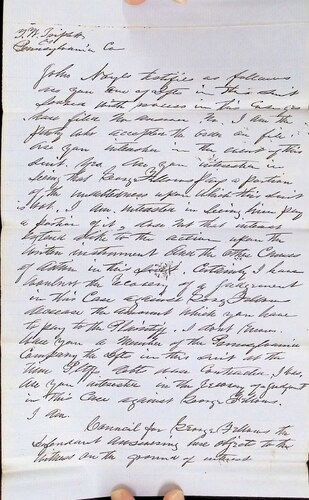 T. W. 
Pennsylvania Co
John testifies as follows
are you one of Defts in this suit
with process in this
have filed no answer No. I am the
party who accepted the on file
are you interested in the event of this
suit, Yes. are you interested in
seeing that George pay a portion
of the indebtedness upon which this suit
is bot. I am interested in seeing him pay
a portion of it, does not that interest
extend both to the action upon the
written instrument and the other Causes
of action in this suit. Certainly I have
the recovery of a judgement
in this Case against George
decrease the amount which you have
to pay to the Plaintiff. I dont know.
Were you a member of the Pennsylvania
Company the Defts in this suit at the
time Ptffs debt was Contracted. I was.
Are you interested in the recovery of judgmt
in this Case against George
I am.
Council for George the
defendant answering here objects to the
witness on the ground of interest